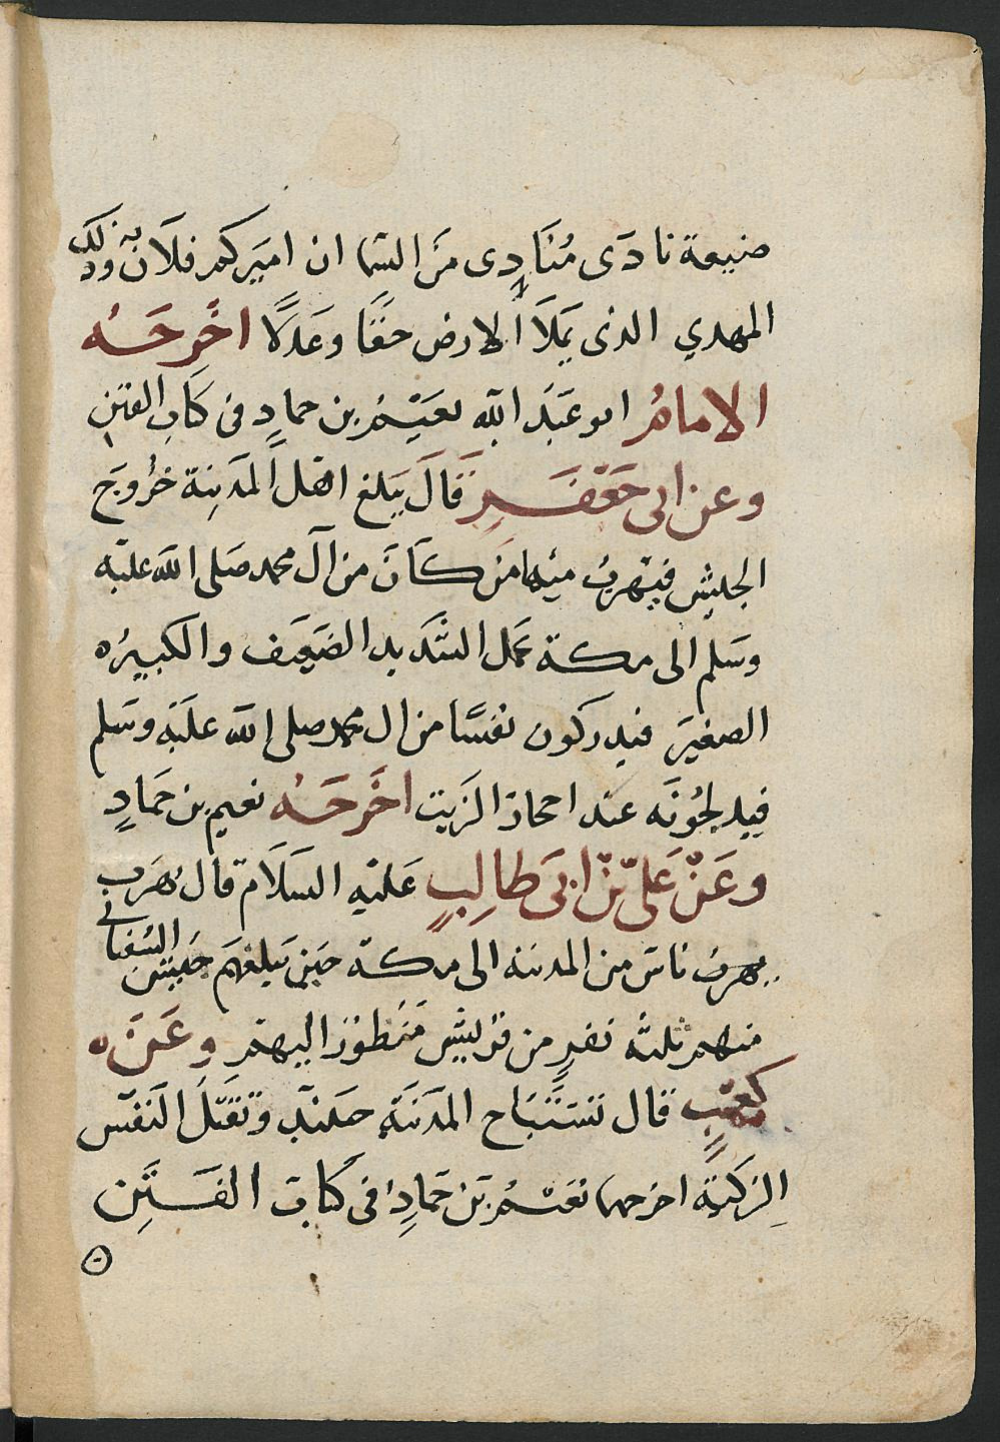 ضيعة نادى مُنَادِى مَن السما ان اميَركم فلَان به وذلك
المهدي الذى يَملَا الارض حقًا وعَدلًا اخَرجَهُ
الامامُ ابو عَبَد الله نعَيْمُ بن حمادٍ فى كَتاب الفتنِ
وعن ابى جَعْفَرٍ قَالَ يَبلغ اهل المَدينة خرُوجَ
الجيش فيَهربُ منهَا مَن كَانَ من آل محمد صَلى الله عليه
وسَلم الى مكة يَحمل الشَديد الضعَيف والكبيرُ
الصغيَر فيدركون نفسًا من ال محمد صلى الله عَليَه وسَلم
فيذبحُونَه عند احجار الزَيت اخَرجَهُ نعيم بن حَمادٍ
وعَنْ عَلىّ بْن ابىَ طالِبٍ عَليْه السلَام قال يهَرب
يهربُ ناسَ من المدينة الى مكة حَين يَبلغهَم جَيش السُفيانى
منهم ثلثة نفرٍ من قرَيش مَنَظوُرَ اليهَم وعَنَ
كَعبٍ قال تسَتَبَاح المَدينَة حينئذَ وتَقتَل النَفَس
الزكيَة اخرجهما نعَيْمُ بَن حَمادٍ فى كتَاب الفَتَنِ